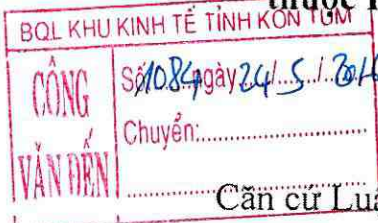 thuộc
BQL KHU KINH TẾ TỈNH KON TUM
CÔNG VĂN ĐẾN
Số 1084 ngày 24/5/
Chuyển:
Căn cứ Luậ